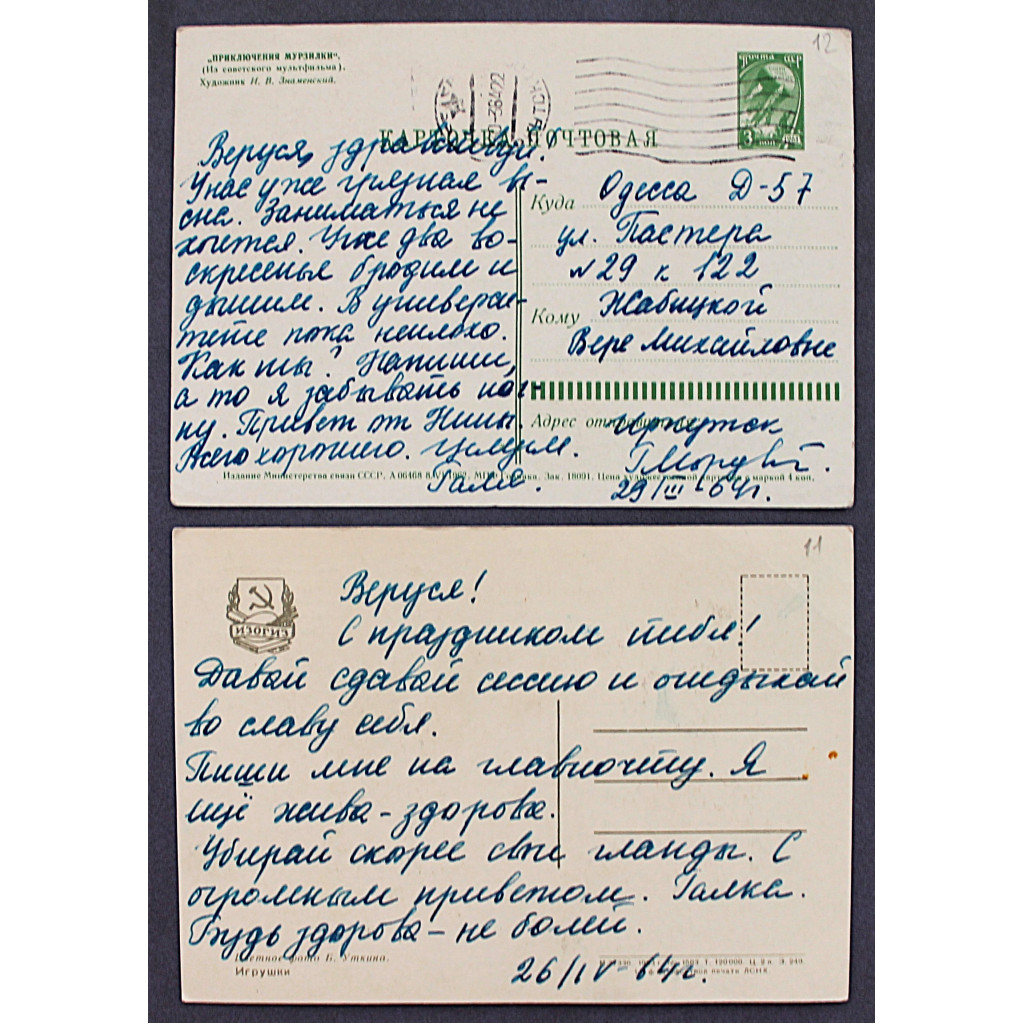 12
„ПРИКЛЮЧЕНИЯ МУРЗИЛКИ“.
(Из советского мультфильма).
Художник И. В. Знаменский.
ПОЧТА СССР
3 коп.
КАРТОЧКА ПОЧТОВАЯ
Веруся, здравствуй.
У нас уже грязная ве-
сна. Заниматься не
хочется. Уже два во-
скресенья бродим и
дышим. В универси-
тете пока неплохо.
Как ты? Напиши,
а то я забывать нач-
ну. Привет от Нины.
Всего хорошего. Целуем.
Галя.
Куда Одесса Д-57
ул. Пастера
N 29 к 122
Кому Жабицкой
Вере Михайловне
Адрес отправителя: Иркутск
29/III-64г.
Издание Министерства связи СССР. А 06468 1962. Зак. 18091. Цена художественной карточки с маркой 4 коп.
11
ИЗОГИЗ
Веруся!
С праздником тебя!
Давай сдавай сессию и отдыхай
во славу себя.
Пиши мне на главпочту. Я
ещё жива-здорова.
Убирай скорее свои гланды. С
огромным приветом. Галка.
Будь здорова – не болей.
26/IV-64г.
Цветное фото Б. Уткина.
Игрушки